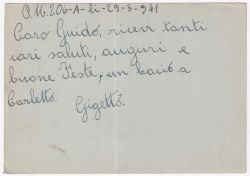 O.M. 206-A-li-29-3-941
Caro Guido, ricevi tanti
cari saluti, auguri e
buone Feste, un bacio a
Carletto.
Gigetto.